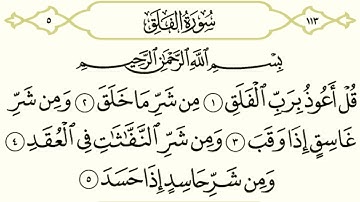 ١١٣ سُورَةُ الْفَلَقِ ٥
بِسْمِ اللَّهِ الرَّحْمَٰنِ الرَّحِيمِ
قُلْ أَعُوذُ بِرَبِّ الْفَلَقِ ١ مِن شَرِّ مَا خَلَقَ ٢ وَمِن شَرِّ
غَاسِقٍ إِذَا وَقَبَ ٣ وَمِن شَرِّ النَّفَّاثَاتِ فِي الْعُقَدِ ٤
وَمِن شَرِّ حَاسِدٍ إِذَا حَسَدَ ٥